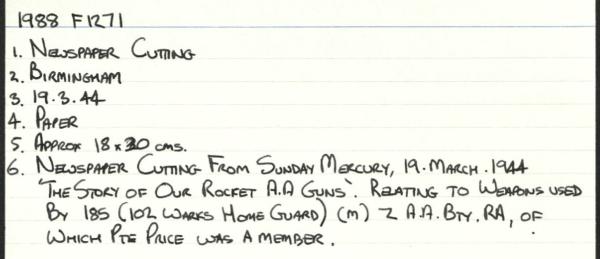 1988 F1271
1. NEWSPAPER CUTTING
2. BIRMINGHAM
3. 19.3.44
4. PAPER
5. APPROX 18 x 30 cms.
6. NEWSPAPER CUTTING FROM SUNDAY MERCURY, 19.MARCH.1944
'THE STORY OF OUR ROCKET A.A GUNS'. RELATING TO WEAPONS USED
BY 185 (102 WARKS HOME GUARD) (M) Z A.A. BTY. RA, OF
WHICH PTE PRICE WAS A MEMBER.